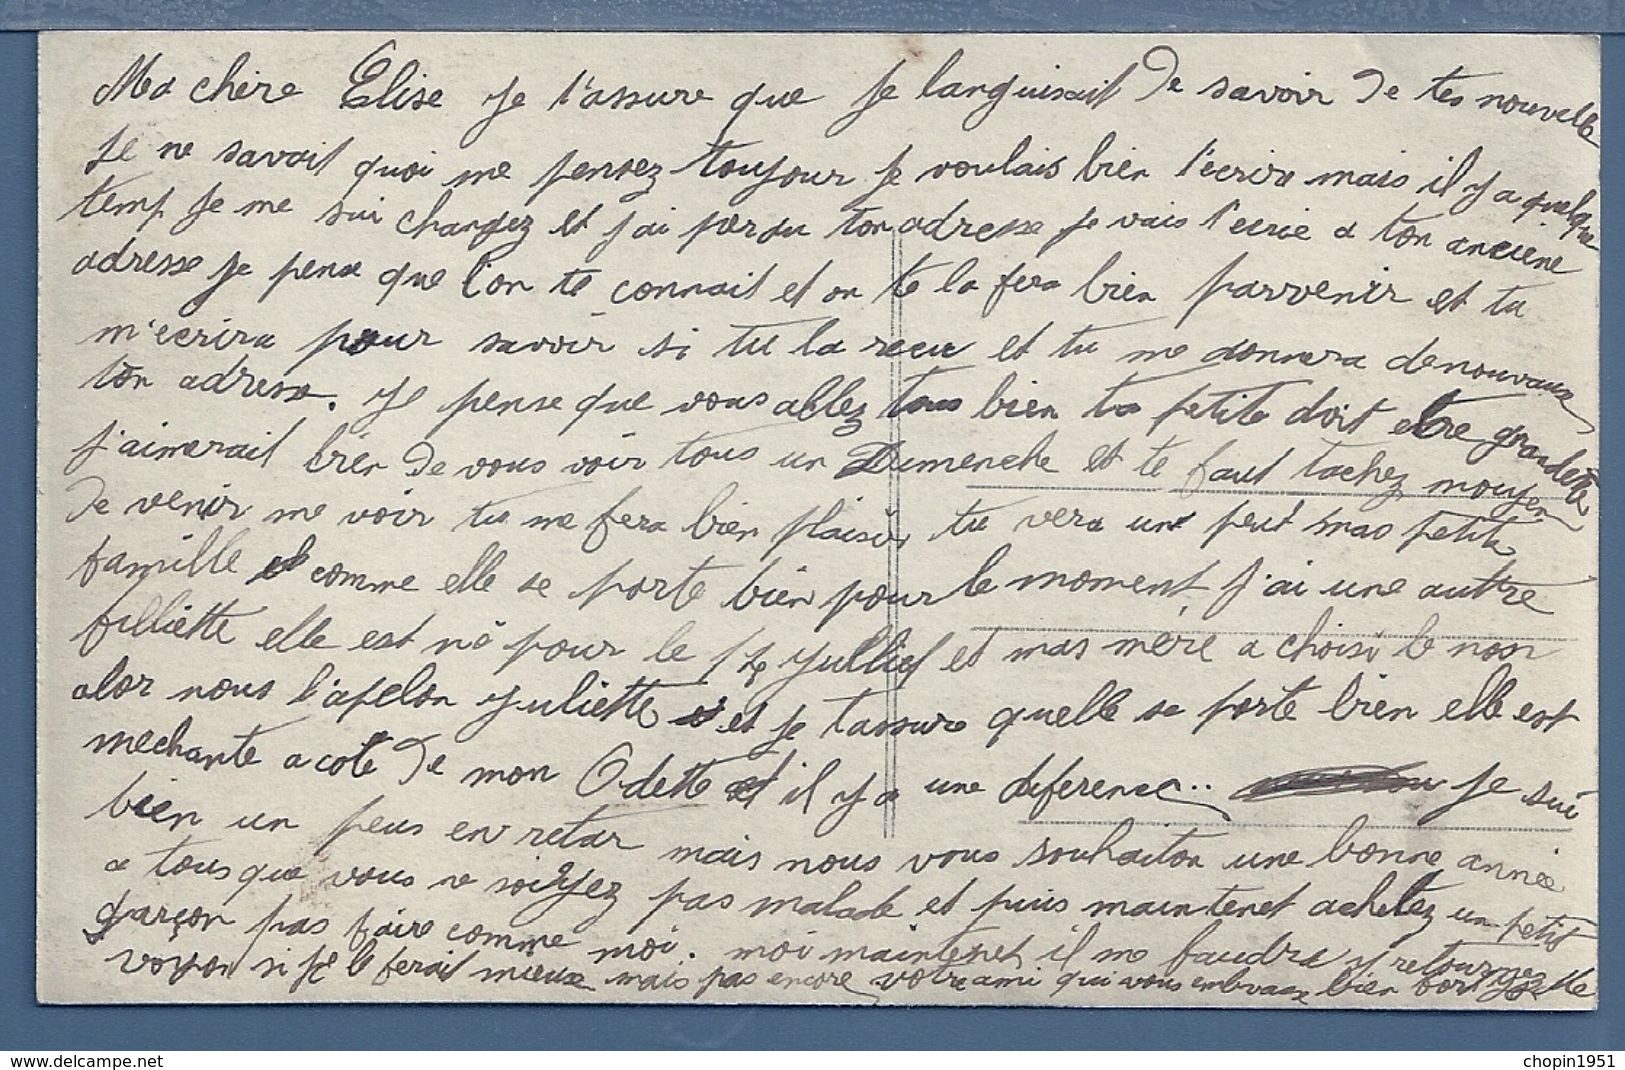 Ma chère Elise je t'assure que je languisait de savoir de tes nouvelle
je ne savait quoi me pensez toujour je voulais bien t'ecrire mais il y a quelque
temp je me sui changez et j'ai perdu ton adresse je vais t'ecrie a ton anciene
adresse je pense que l'on te connait et on te la fera bien parvenir et tu
m'ecrira pour savoir si tu la recu et tu me donnera denouvaux
ton adresse. je pense que vous allez tous bien ta petite doit etre grandette
j'aimerait bien de vous voir tous un Dimenche et te faut tachez mouyen
de venir me voir tu me fera bien plaisir tu vera une peut mas petite
famille et comme elle se porte bien pour le moment, j'ai une autre
filliette elle est né pour le 14 Julliet et mas mère a choisi le nom
alor nous l'apelon Juliette et je tassure quelle se porte bien elle est
mechante a coté de mon Odette et il y a une diference.. je sui
bien un peus en retar mais nous vous souhaiton une bonne année
a tous que vous ne soiyez pas malade et puis maintenet achetez un petit
garçon pas faire comme moi. moi maintenet il me faudra y retournez
voyon si je le ferait mieux mais pas encore votre ami qui vous embrasse bien fort
Mad
WWW.delcampe.net
chopin1951